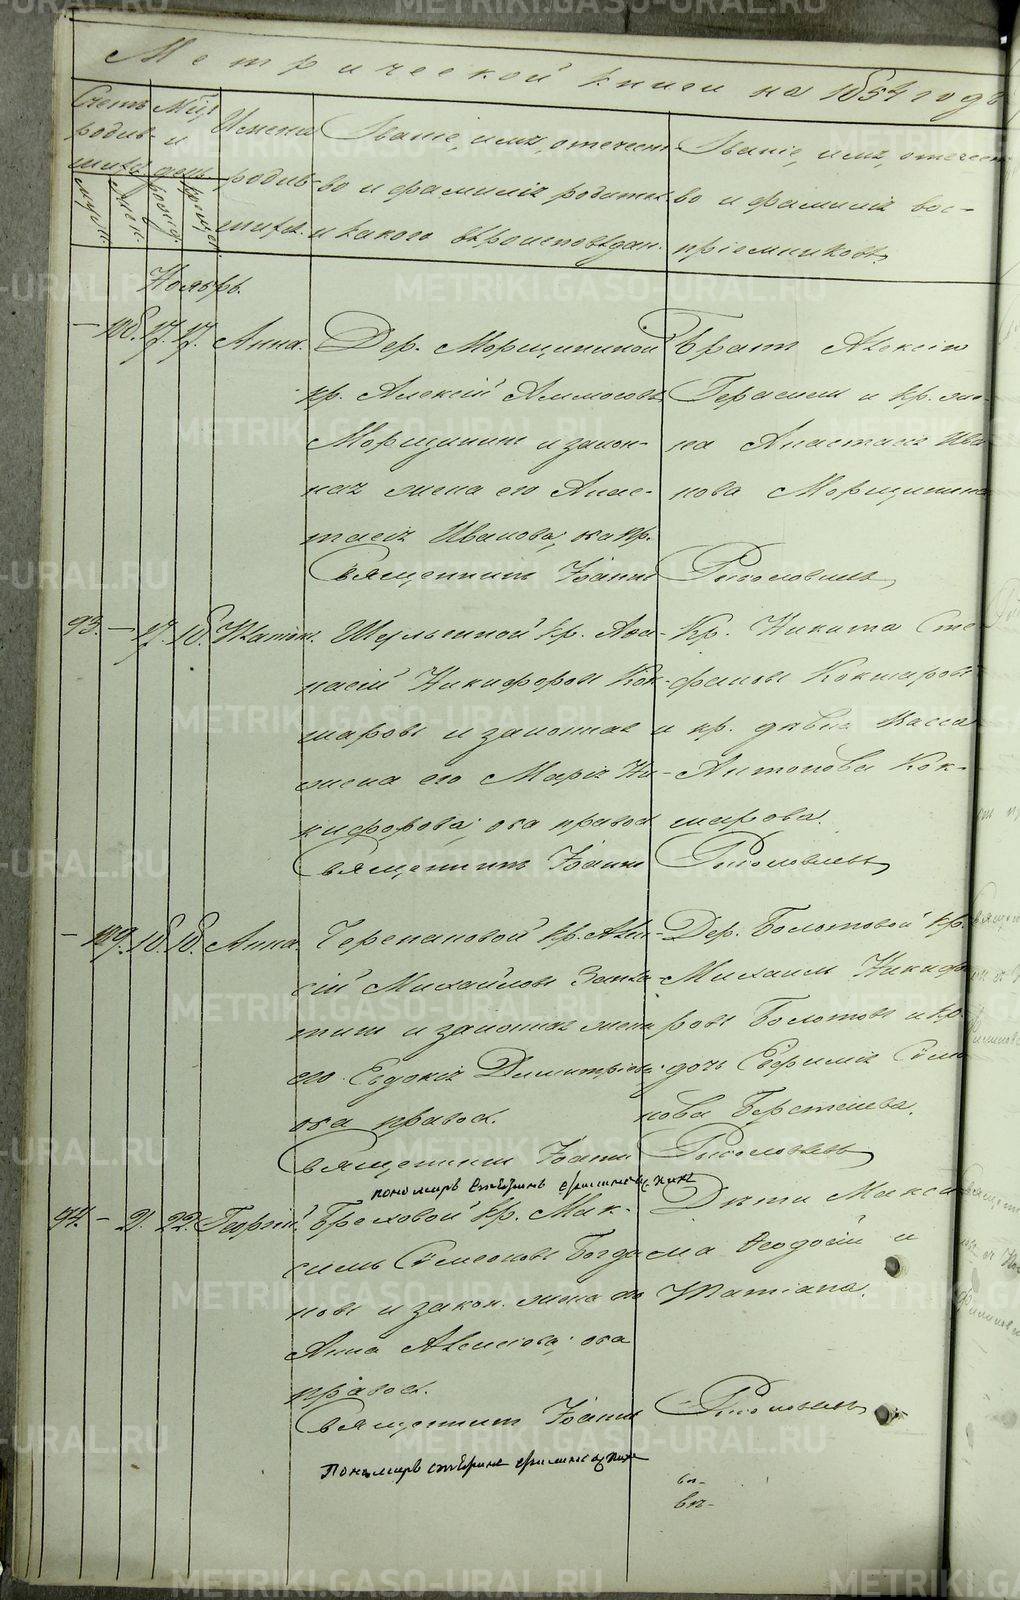 Метрической книги на 1854 годъ
Счетъ родив-шихъ
муж. жен.
Мѣц. и день
рожд. крещ.
Имена родив-шихъ.
Званіе, имя, отечест-
во и фамилія родител.
и какого вѣроисповѣдан.
Званіе, имя, отчест
во и фамилія вос-
пріемниковъ,
Ноябрь.
— 108. 17. 17. Анна. Дер. Морщининой
кр. Алексій Аммосовъ
Морщининъ и закон-
ная жена его Анас-
тасія Иванова, оба пр.
Братъ Алексія
Герасимъ и кр. же-
на Анастасія Ива
нова Морщинина
Священникъ Іоаннъ
93. — 17. 18. Платон. Шульгиной кр. Аѳа-
насій Никифоровъ Кок-
шаровъ и законная
жена его Марія Ни-
кифорова; оба правос
Кр. Никита Сте
фановъ Кокшаровъ
и кр. дѣвка Васса
Антонова Кок-
шарова.
Священникъ Іоаннъ
— 109. 18. 18. Анна. Черепановой кр. Алек-
сій Михайловъ
и законная жена
его Евдокія Димитріева;
оба правос.
Дер. Болотовой кр.
Михаилъ Никифо
ровъ Болотовъ и кр.
дочь Евфимія Симе
нова Берстенева.
Священникъ Іоаннъ
пономарь
94. — 21. 22. Георгій. Ерзовой кр. Мак-
симъ Симеоновъ Богда
новъ и закон. жена его
Анна Алексіева; оба
правос.
Дѣти Макси
ма Ѳеодосій и
Татіана.
Священникъ Іоаннъ
Пономарь
METRIKI.GASO-URAL.RU